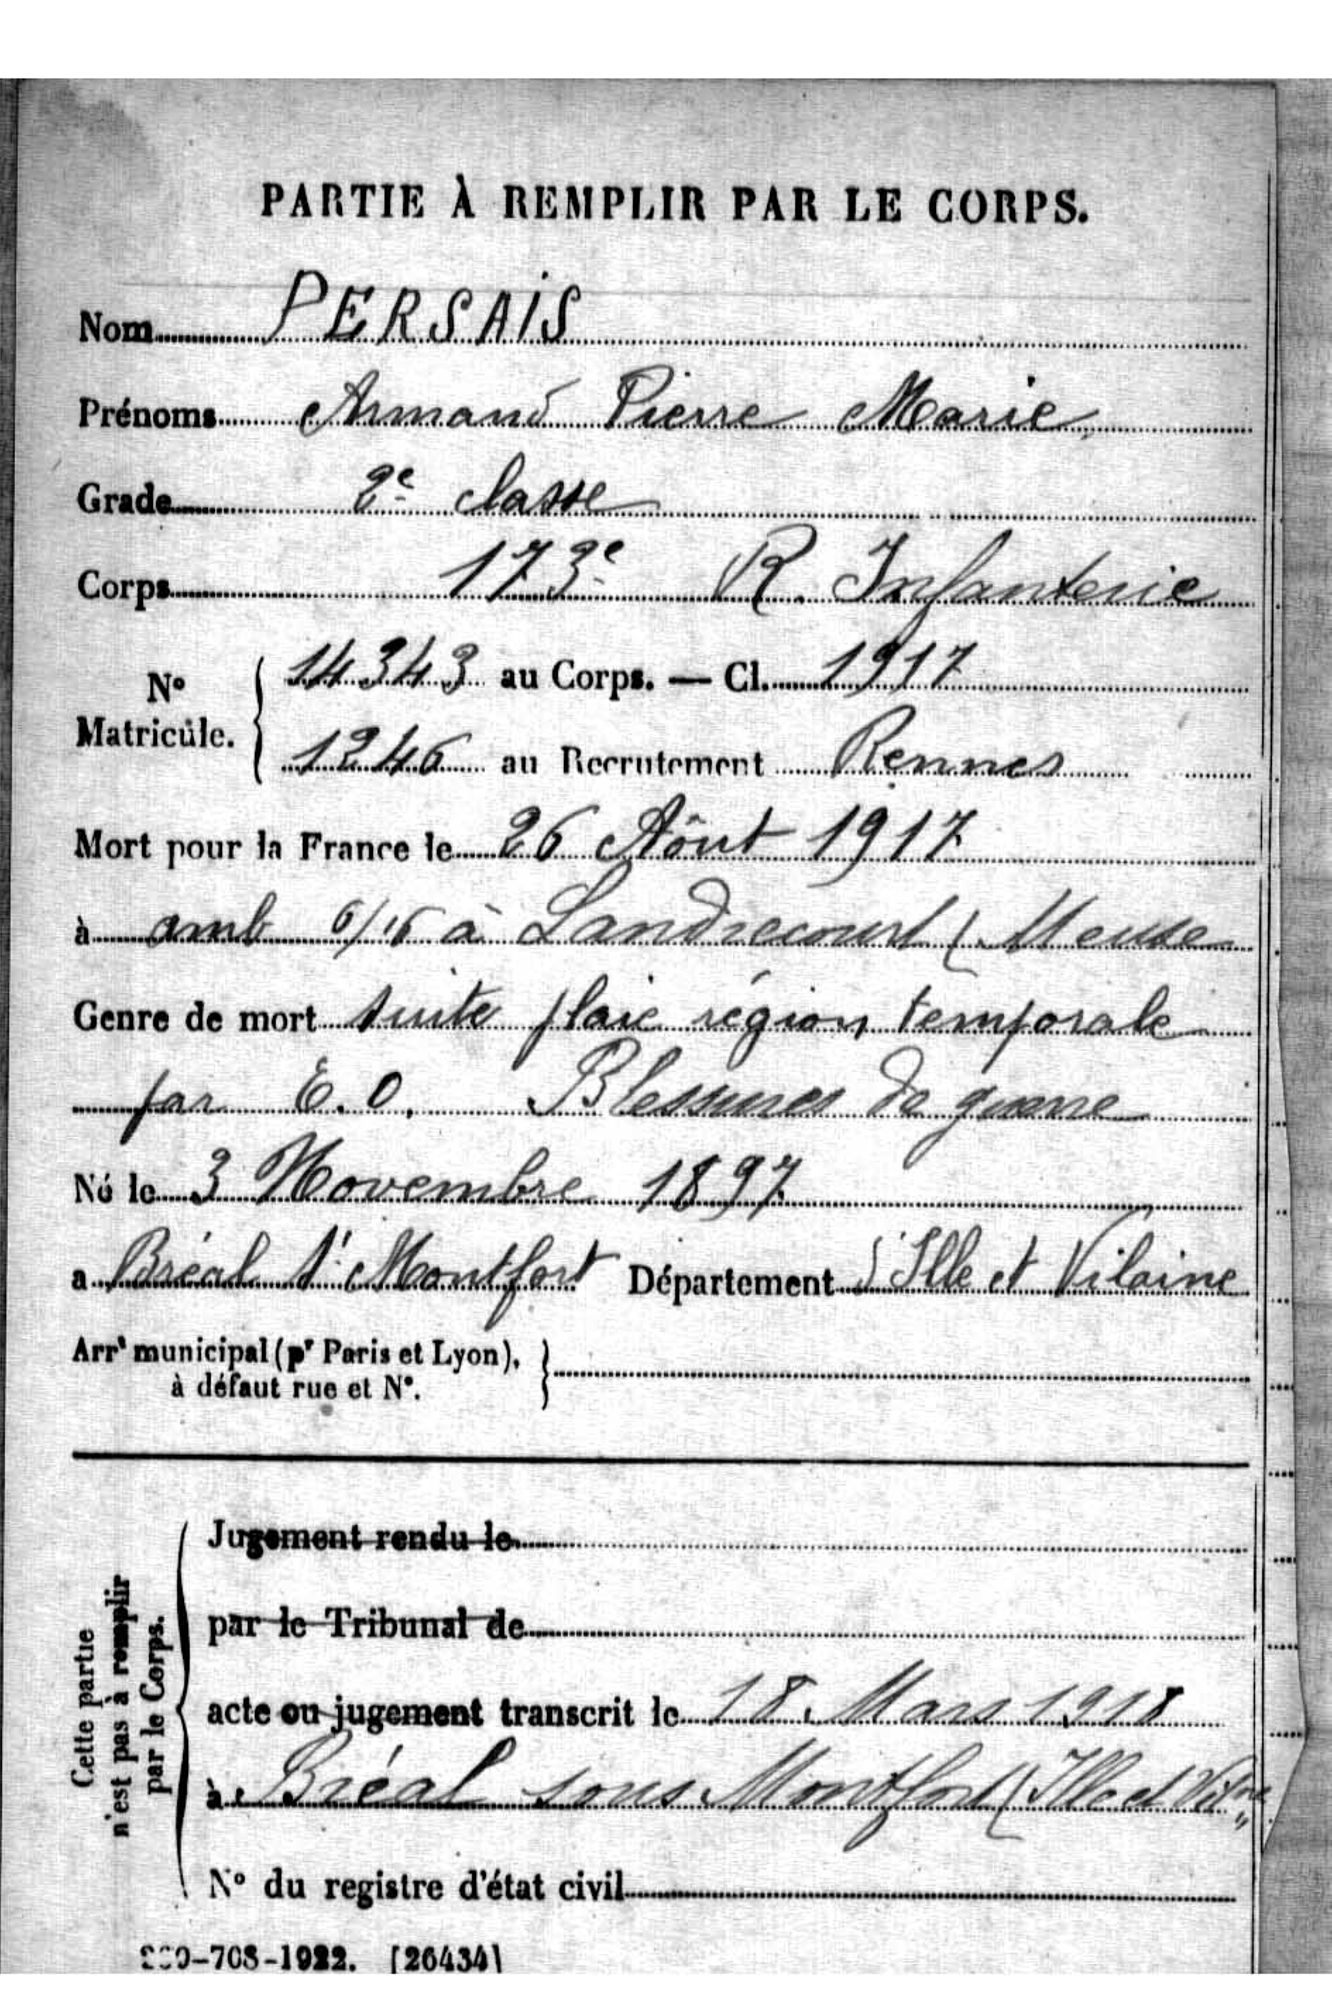 PARTIE À REMPLIR PAR LE CORPS.
Nom PERSAIS
Prénoms Armand Pierre Marie
Grade 2e classe
Corps 173e R. Infanterie
No Matricule. { 14343 au Corps. — Cl. 1917
1246 au Recrutement Rennes
Mort pour la France le 26 Aôut 1917
à amb 6/16 à Landrecourt (Meuse
Genre de mort suite plaie région temporale
par E.O. Blessures de guerre
Né le 3 Novembre 1897
a Bréal s/ Montfort Département d'Ille et Vilaine
Arrt municipal (pr Paris et Lyon), }
à défaut rue et No.
Cette partie
n'est pas à remplir
par le Corps.
Jugement rendu le
par le Tribunal de
acte ou jugement transcrit le 18 Mars 1918
à Bréal sous Montfort (Ille et Vilne
No du registre d'état civil
-708-1922. [26434]